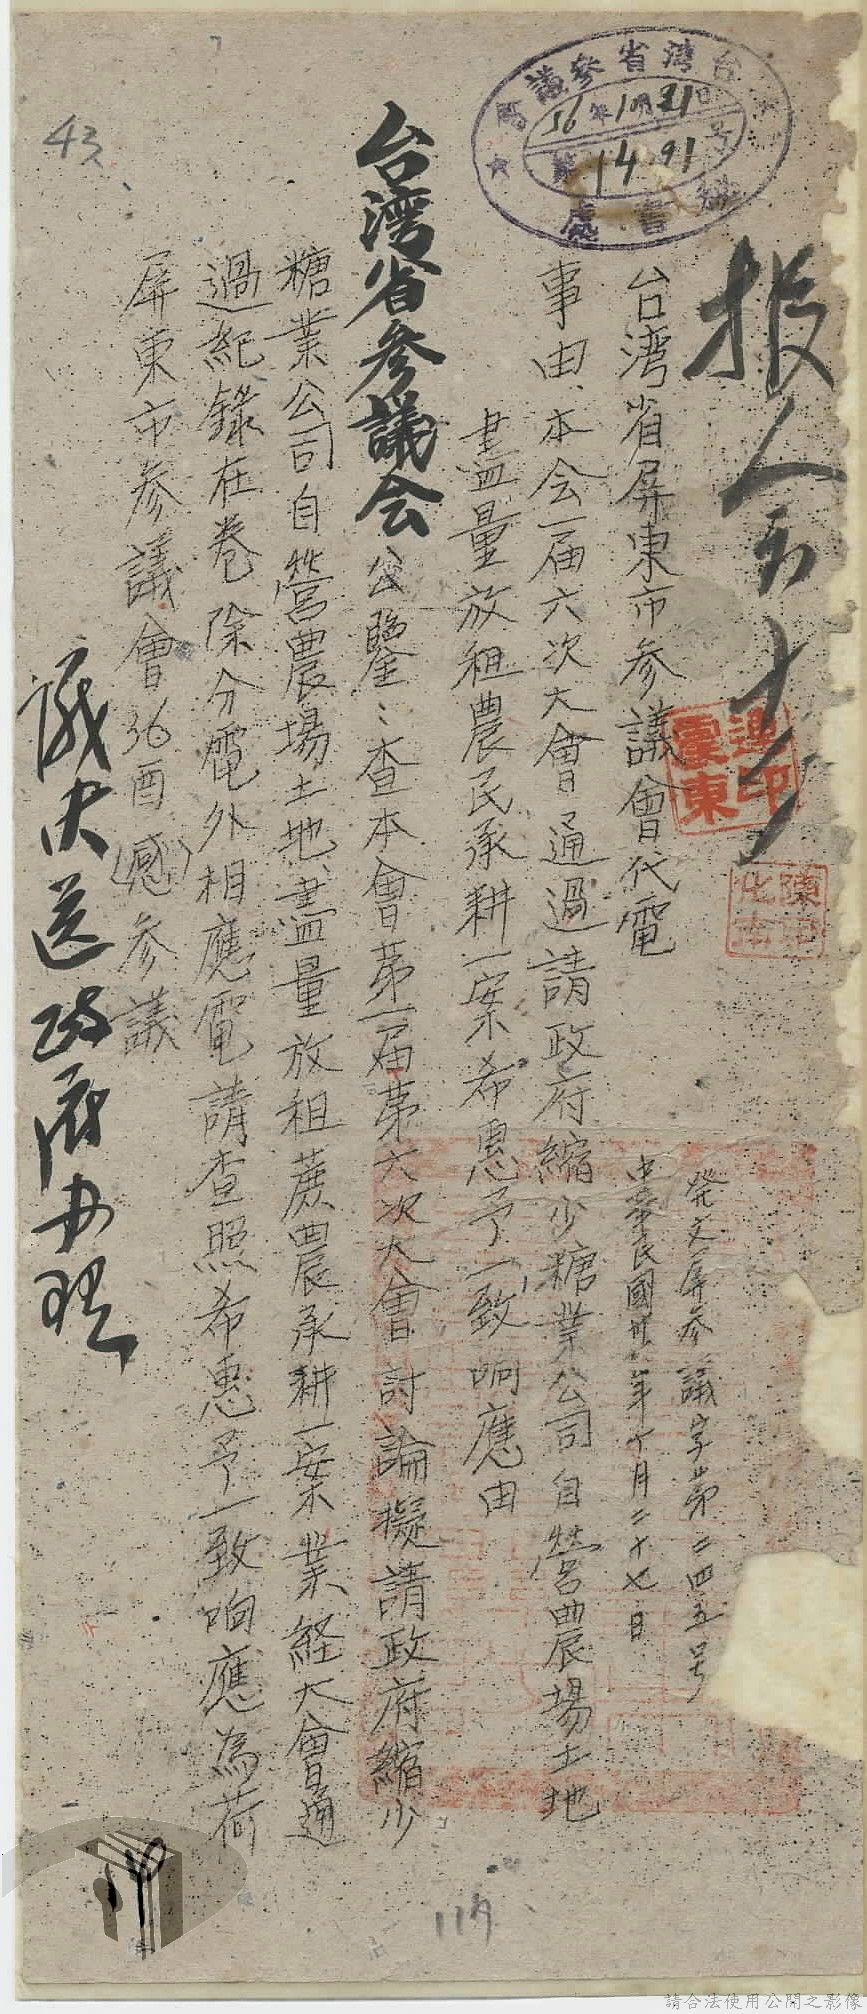 台灣省參議會
36年10月31日
第1491号
秘書處
台湾省屏東市参議會代電
發文屏参議字第二四五号
中華民國卅六年十月二十七日
事由、本会一届六次大會通過請政府縮少糖業公司自營農場土地
盡量放租農民承耕一案希惠予一致响應由
台湾省参議会公鑒:查本會第一届第六次大會討論擬請政府縮少
糖業公司自營農場土地盡量放租蔗農承耕一案業経大會通
過紀錄在卷除分電外相應電請查照希惠予一致响應為荷
屏東市参議會36酉(感)参議
議決送政府办理
43
連震東印
117
請合法使用公開之影像